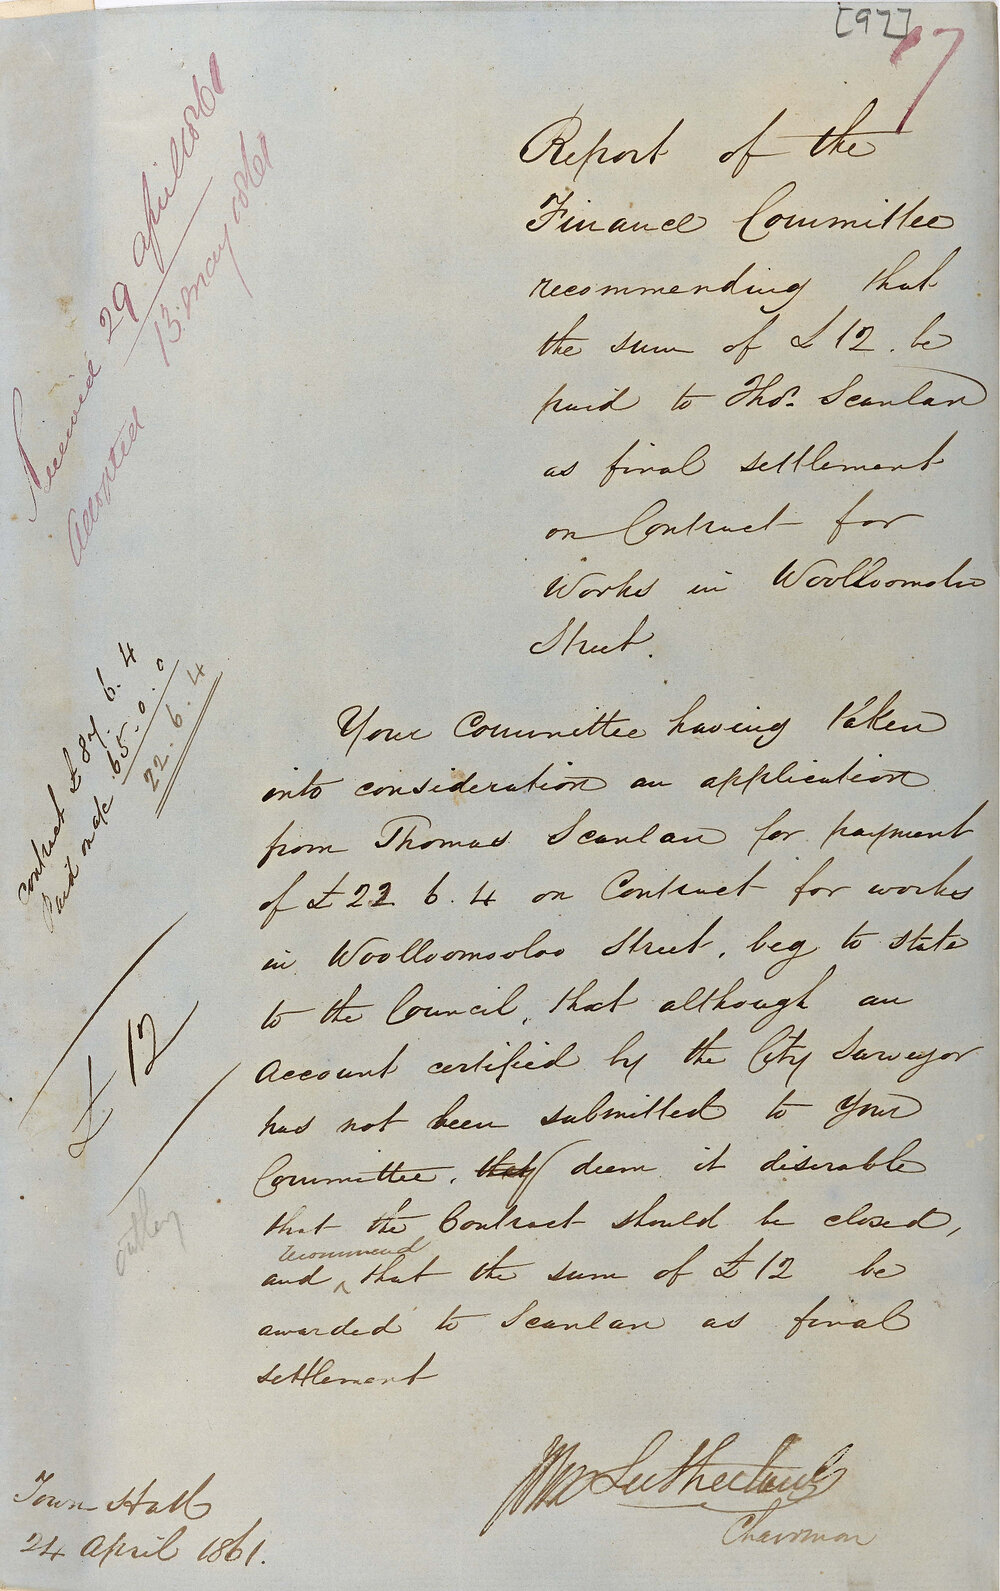 [92]
7
Received 29 April 1861
Adopted 13. May 1861
Report of the
Finance Committee
recommending that
the sum of £12. be
paid to Thos. Scanlan
as final settlement
on Contract for
Works in Woolloomoloo
Street.
contract £87. 6. 4
Paid on a/c 65. 0. 0
22. 6. 4
£12
Your Committee having taken
into consideration an application
from Thomas Scanlan for payment
of £22 6. 4 on Contract for works
in Woolloomooloo Street, beg to state
to the Council, that although an
Account certified by the City Surveyor
has not been submitted to Your
Committee, they deem it desirable
that the Contract should be closed,
recommend
and ^ that the sum of £12 be
awarded to Scanlan as final
settlement
Sutherland
Chairman
Town Hall
24 April 1861.